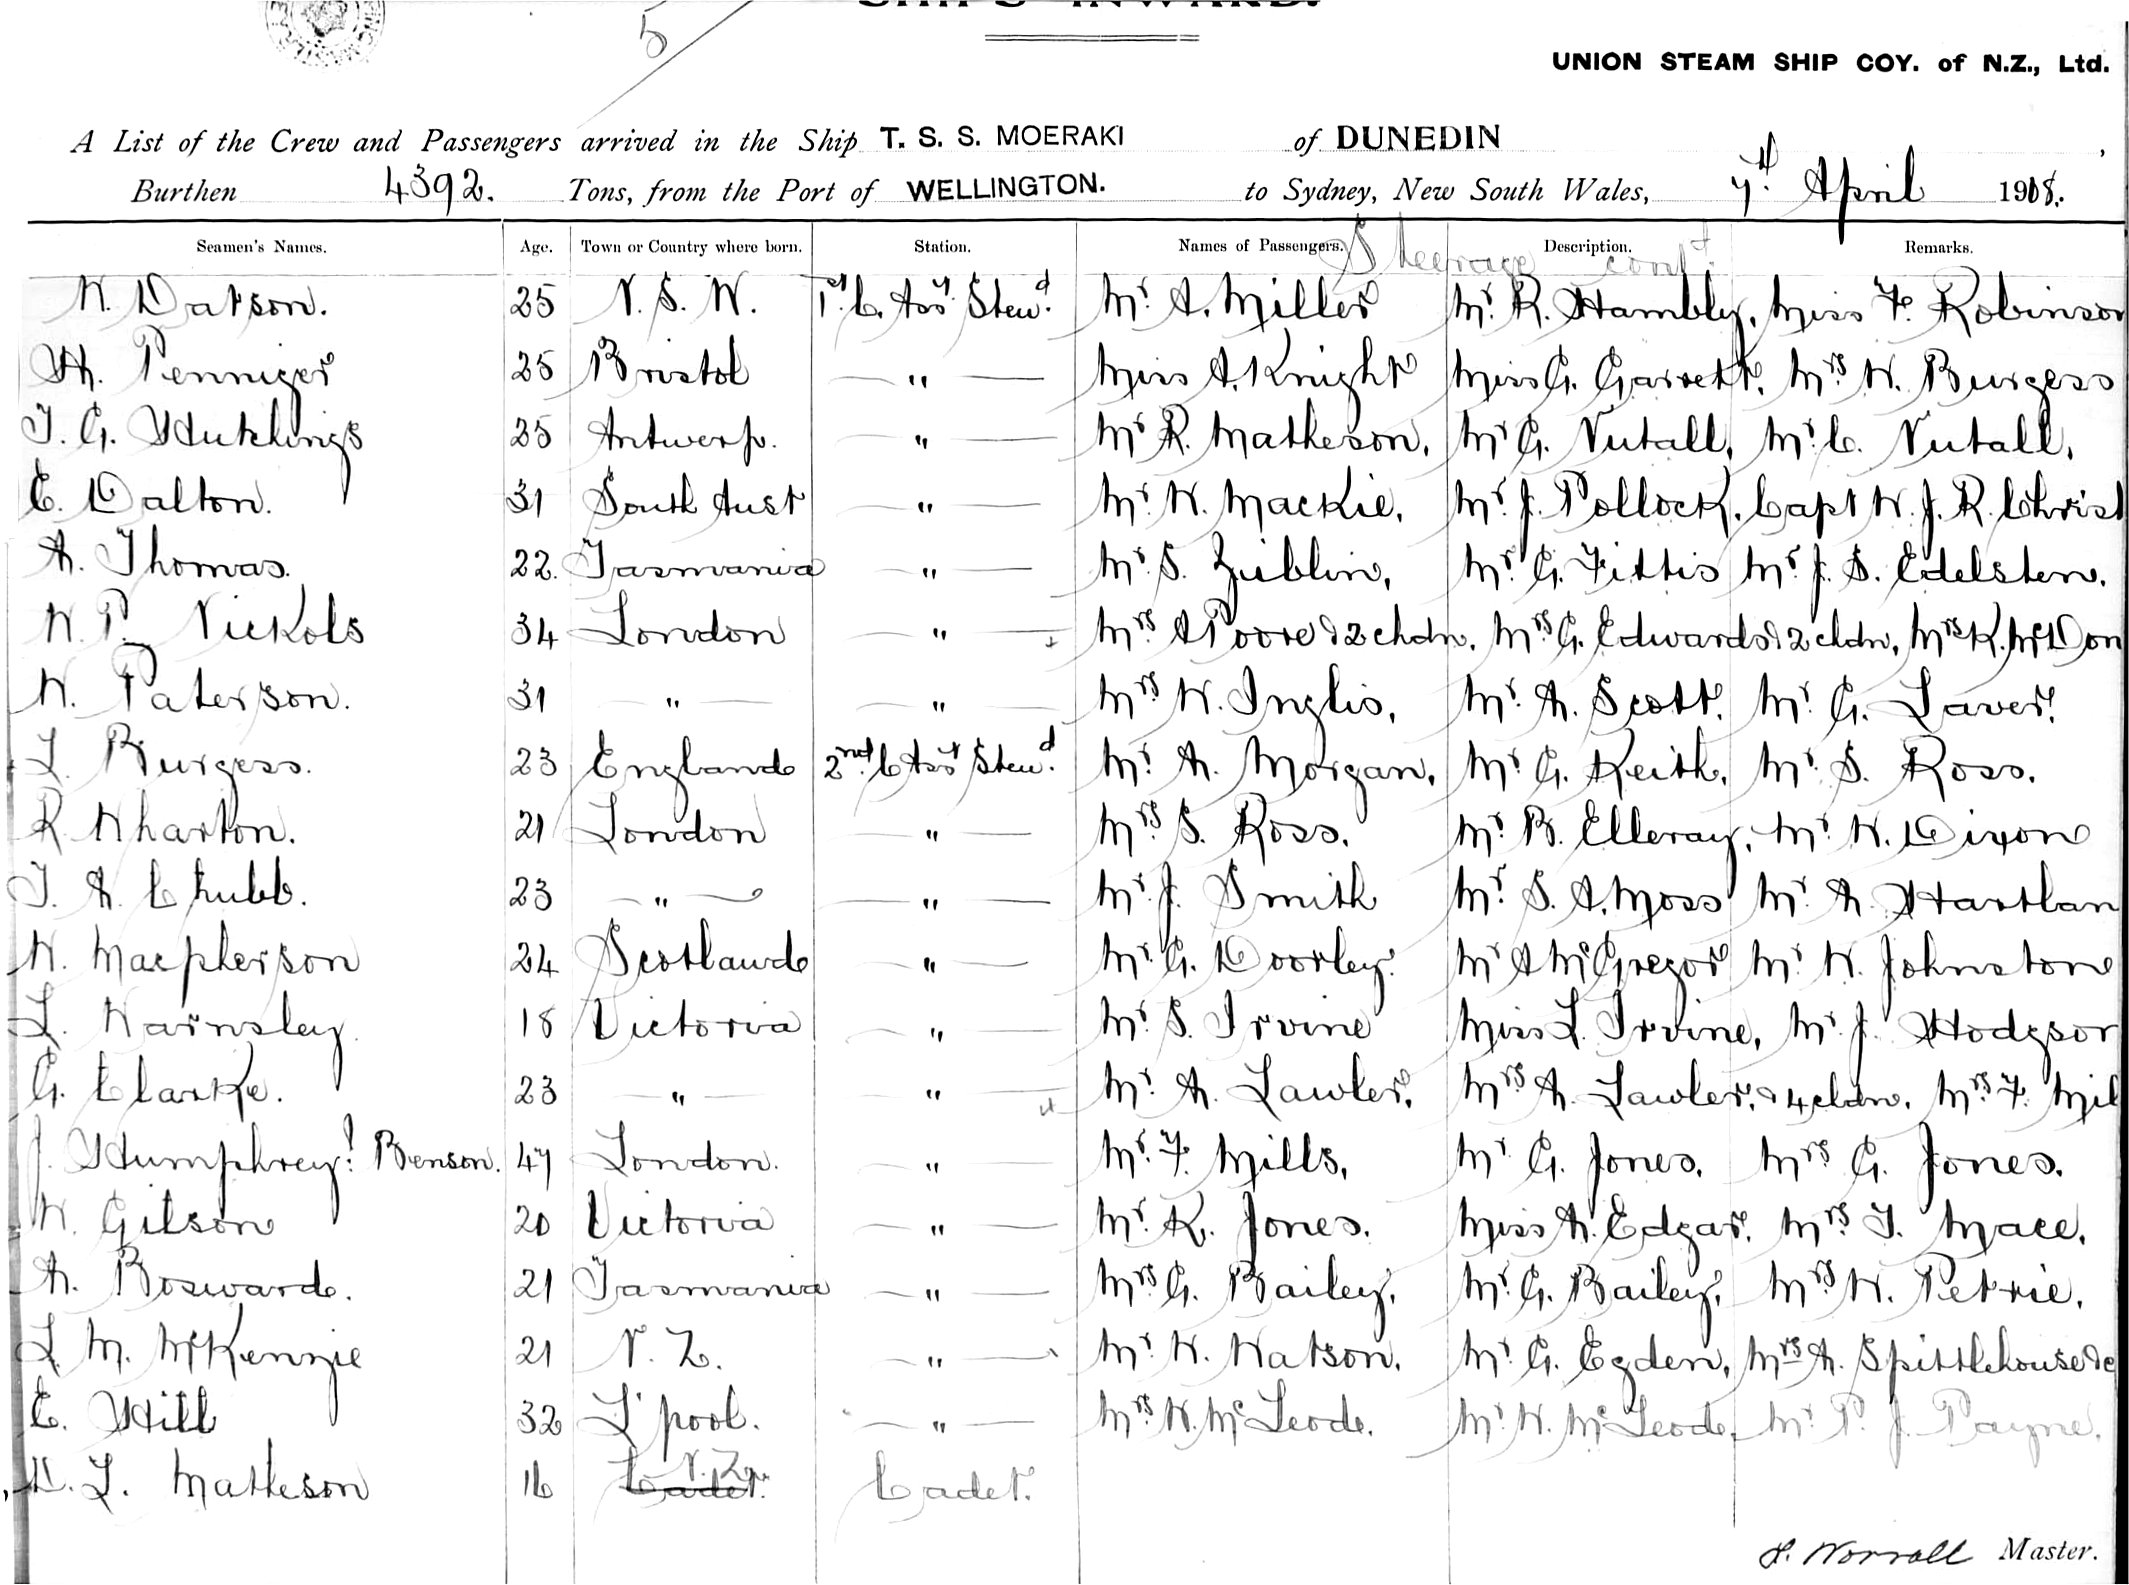 SHIPS INWARD.
5
UNION STEAM SHIP COY. of N.Z., Ltd.
A List of the Crew and Passengers arrived in the Ship T. S. S. MOERAKI of DUNEDIN ,
Burthen 4392. Tons, from the Port of WELLINGTON. to Sydney, New South Wales, 7th April 1908.
Seamen's Names. Age. Town or Country where born. Station. Names of Passengers. Description. Remarks.
Steerage cont.
W. Datson. 25 N. S. W. 1st C. Asst Stewd. Mr. A. Miller Mr. R. Hambly, Miss F. Robinson
H. Penniger 25 Bristol " Miss A. Knight Miss G. Garrett, Mrs W. Burgess
T. G. Hutchings 25 Antwerp. " Mr R. Matheson, Mr G. Nutall, Mr. C. Nutall,
E. Dalton. 31 South Aust " Mr. W. Mackie, Mr. J. Pollock, Capt W. J. R. Christ
A. Thomas. 22. Tasmania " Mr. S. Zublin, Mr. G. Fittis Mr. J. S. Edelsten.
W. P. Nickols 34 London " Mrs A Poore & 2 chdn, Mrs G. Edwards & 2 chdn, Mrs K. McDon
W. Paterson. 31 " " Mrs W. Inglis, Mr. A. Scott, Mr. G. Laver,
L. Burgess. 23 England 2nd C Asst Stewd. Mr. A. Morgan, Mr. G. Keith, Mr. S. Ross.
R Wharton. 21 London " Mrs S. Ross, Mr. B. Elleray, Mr. W. Dixon
T. A. Chubb. 23 " " Mr. J. Smith Mr. S. A. Moss Mr. A. Hartlan
W. Macpherson 24 Scotland " Mr. G. Doorley. Mr A McGregor Mr. W. Johnstone
L. Warnsley 18 Victoria " Mr. S. Irvine Miss L. Irvine, Mr. J. Hodgson
G. Clarke. 23 " " Mr. A. Lawler, Mrs A. Lawler, & 4 chdn, Mrs F. Mil
J. Humphrey. Benson. 47 London. " Mr. F. Mills, Mr G. Jones, Mrs G. Jones.
W. Gilson 20 Victoria " Mr. K. Jones. Miss A. Edgar. Mrs T. Mace,
A. Bosward. 21 Tasmania " Mrs G. Bailey, Mr. G. Bailey, Mrs W. Petrie,
L. M. McKenzie 21 N. Z. " Mr. W. Watson, Mr. G. Egden, Mrs A. Spittlehouse & c
E. Hill 32 L'pool. " Mrs W. McLeod. Mr. W. McLeod, Mr. P. J. Payne.
D. L. Matheson 16 Cadet. N.Z. Cadet.
Worrall Master.